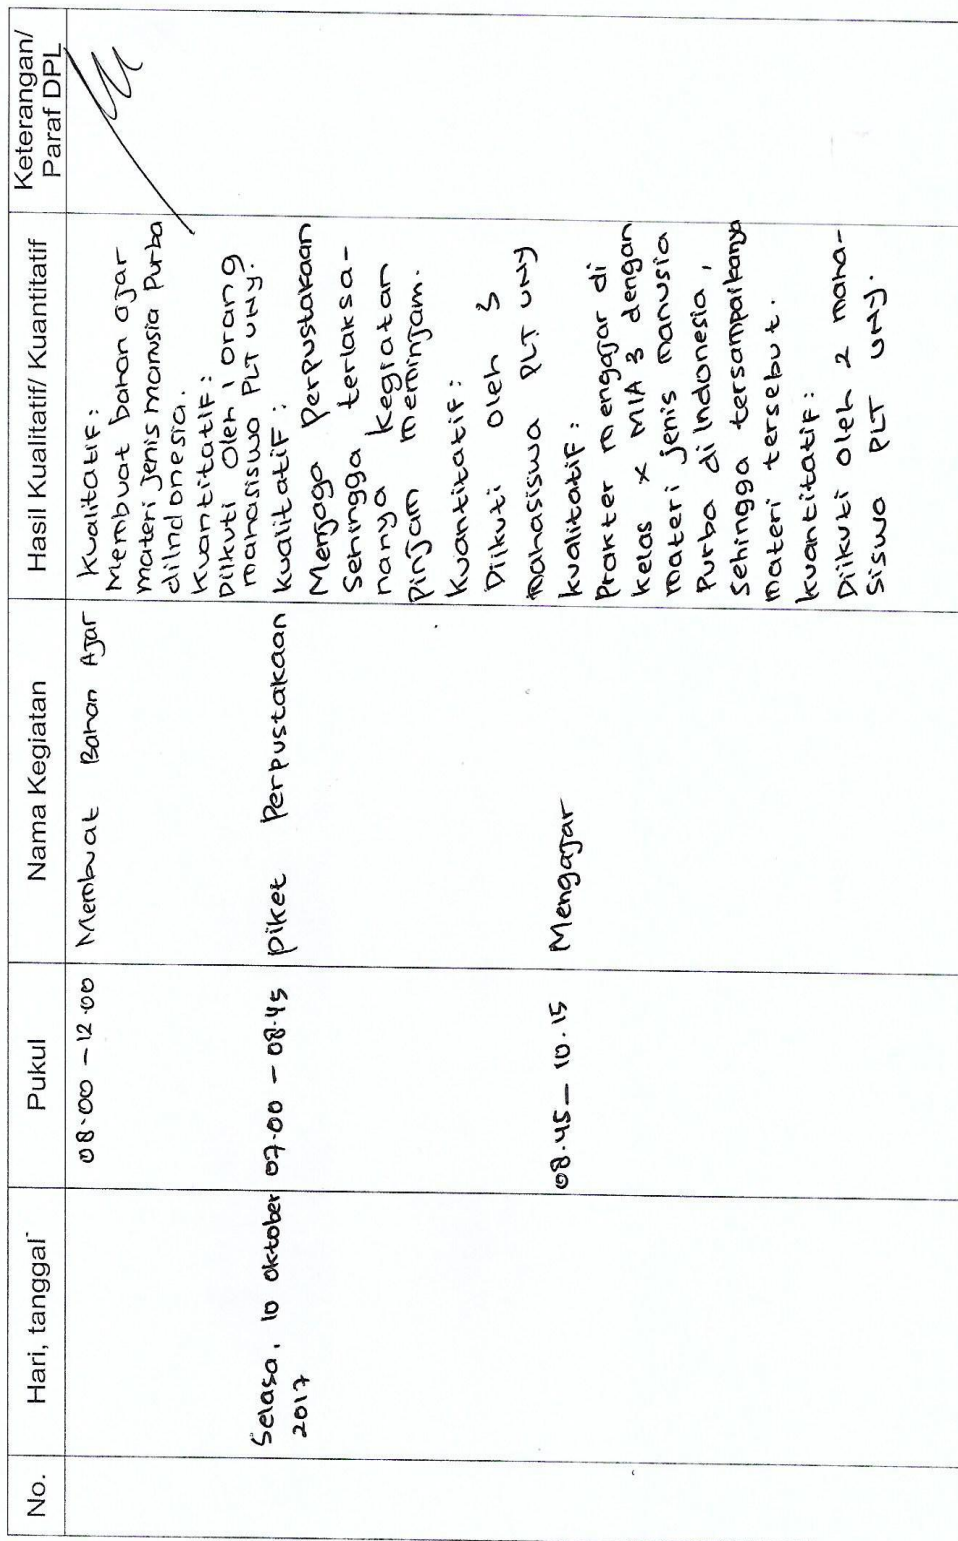 No.
Hari, tanggal
Pukul
Nama Kegiatan
Hasil Kualitatif/ Kuantitatif
Keterangan/
Paraf DPL
08.00 - 12.00
Membuat Bahan Ajar
Kualitatif:
Membuat bahan ajar
materi jenis manusia Purba
diIndonesia.
Kuantitatif:
Diikuti Oleh 1 orang
mahasiswa PLT UNY.
Selasa, 10 Oktober
2017
07.00 - 08.45
Piket Perpustakaan
Kualitatif:
Menjaga Perpustakaan
Sehingga terlaksa-
nanya kegiatan
Pinjam meminjam.
Kuantitatif:
Diikuti Oleh 3
mahasiswa PLT UNY
08.45 - 10.15
Mengajar
kualitatif:
Prakter mengajar di
kelas X MIA 3 dengan
materi jenis manusia
Purba di Indonesia,
sehingga tersampaikanya
materi tersebut.
kuantitatif:
Diikuti oleh 2 maha-
siswa PLT UNY.